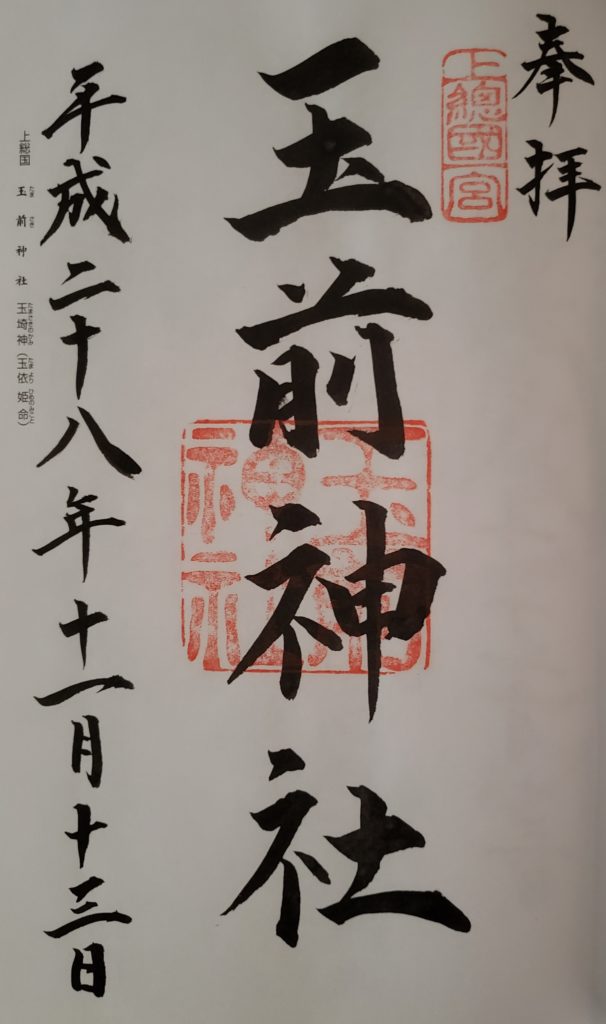 奉拝
上總國一宮
玉前神社
玉前神社
平成二十八年十一月十三日
上総国 玉前神社 玉埼神(玉依姫命)